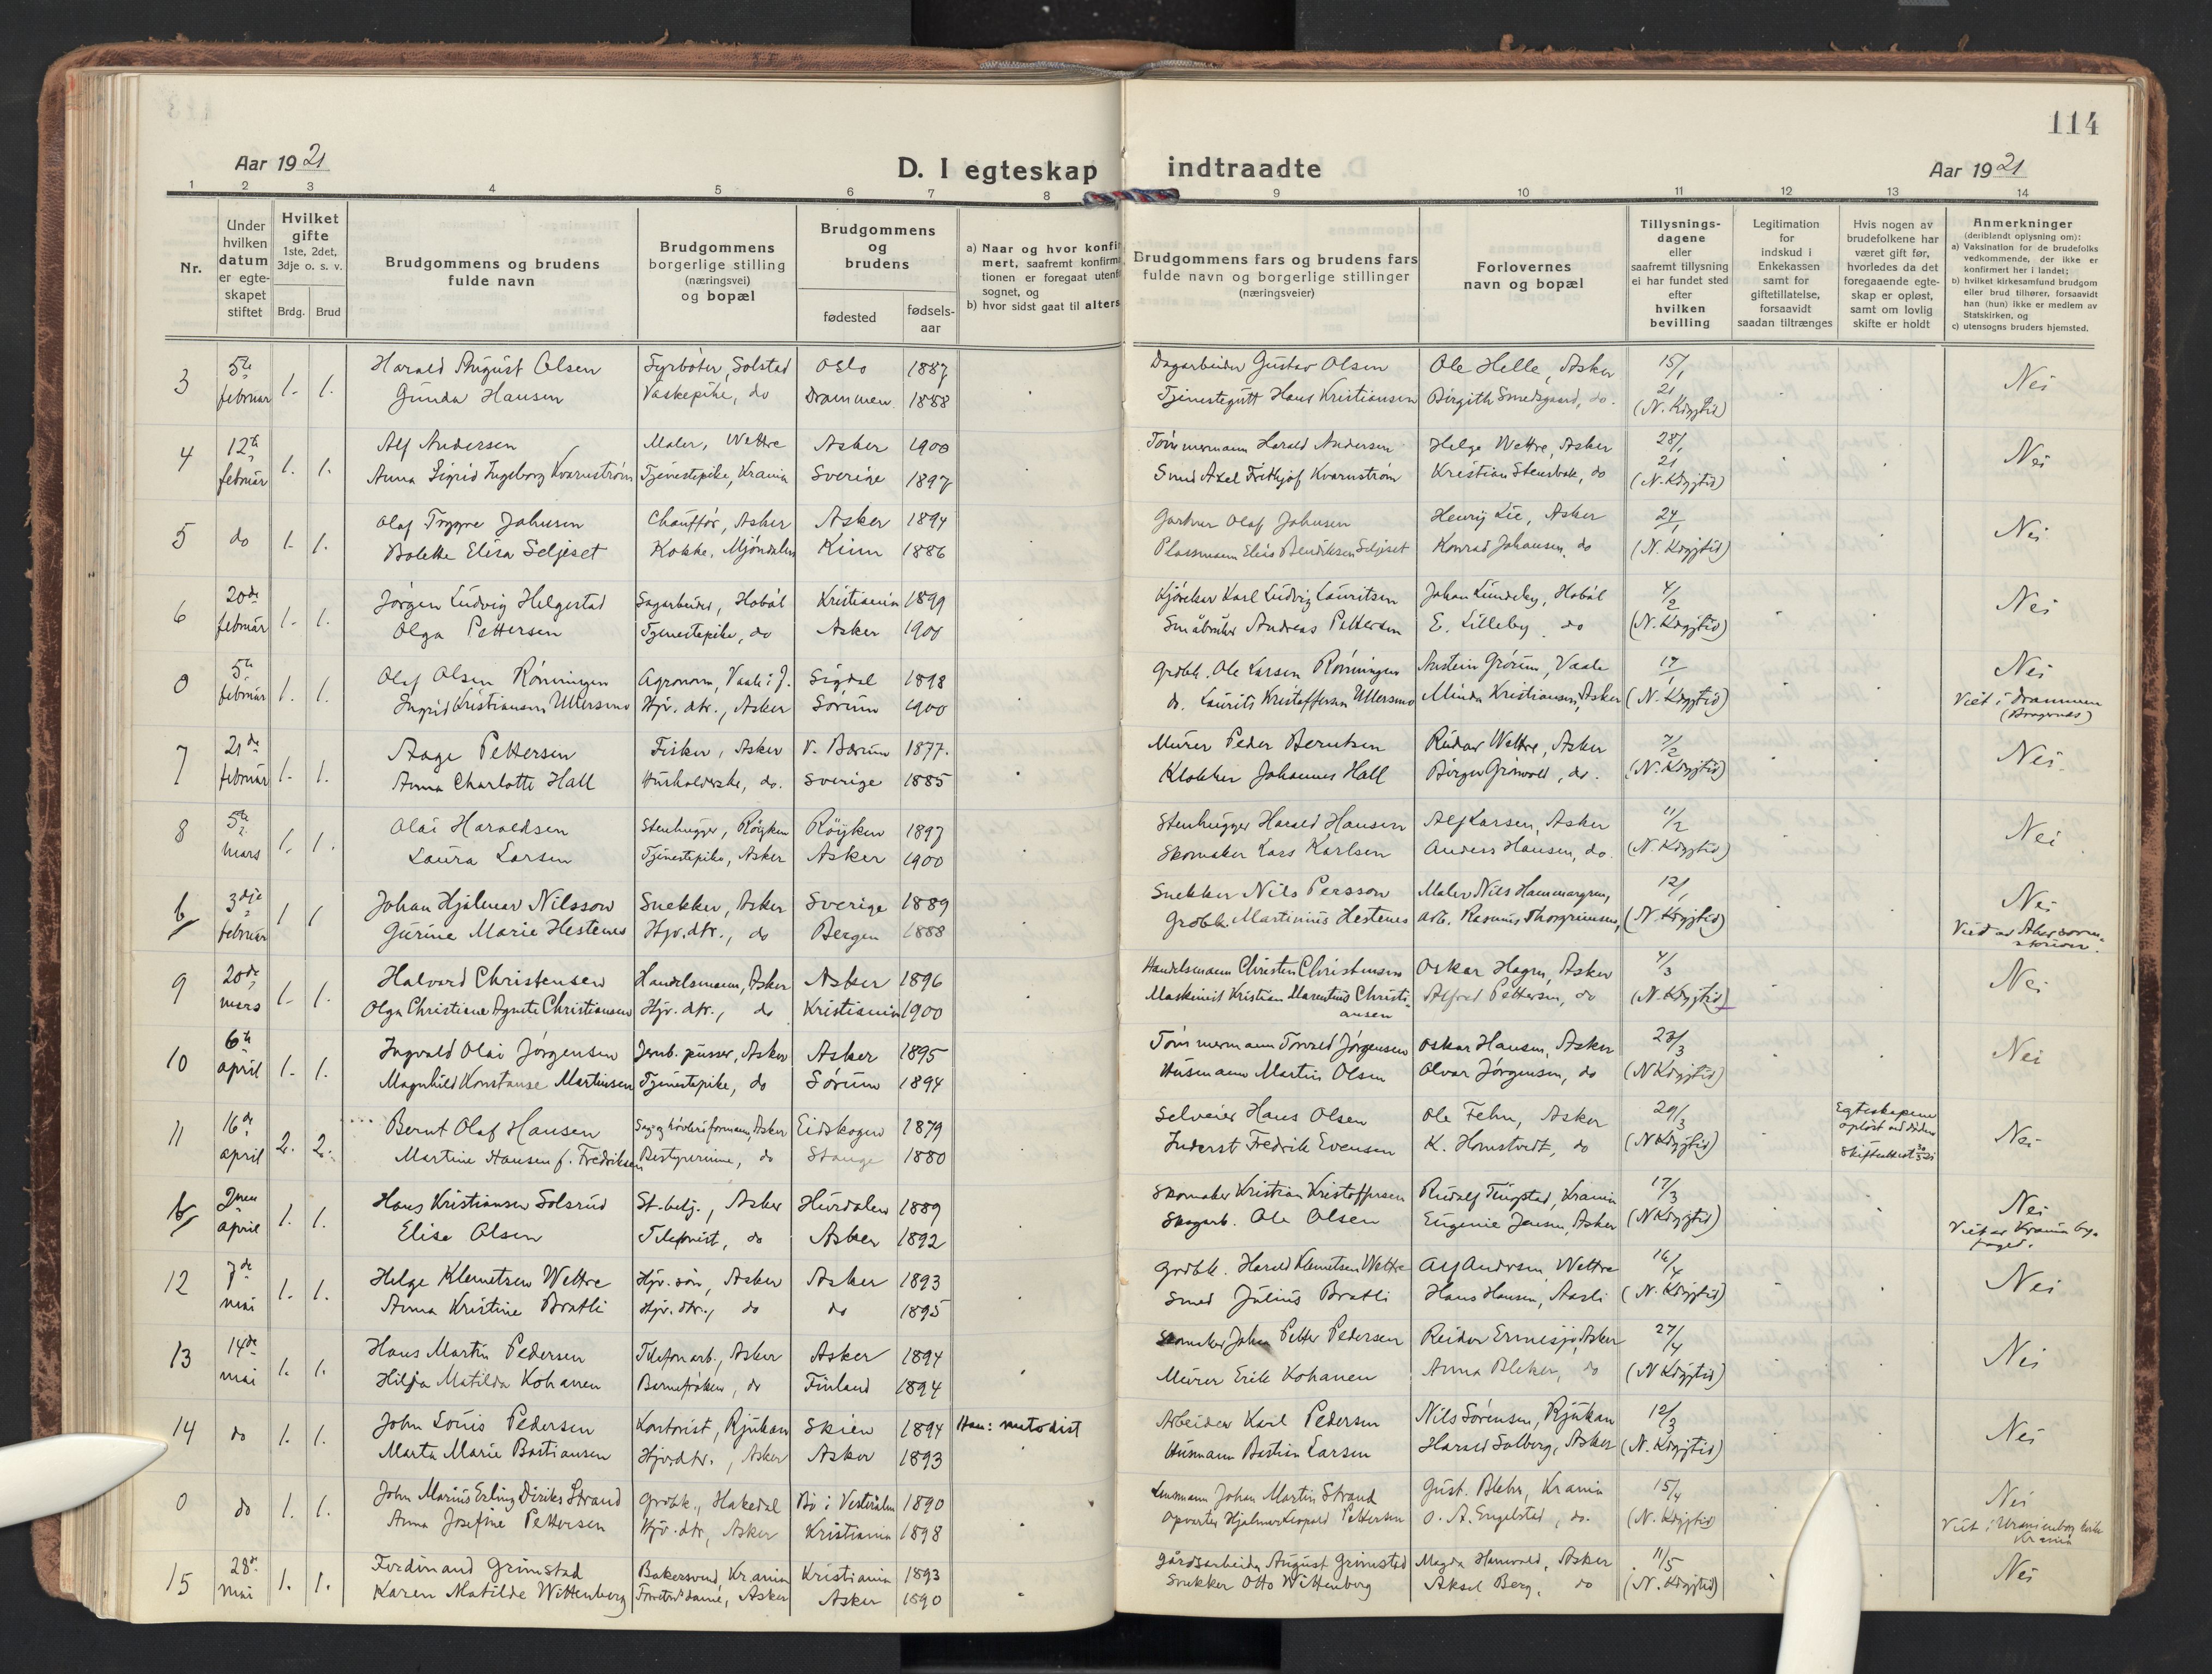 114
Aar 1921
D. I egteskap indtraadte
Aar 1921
1 2 3 4 5 6 7 8 9 10 11 12 13 14
Nr.
Under hvilken datum er egte-skapet stiftet
Hvilket gifte 1ste, 2det, 3dje o. s. v.
Brdg. Brud
Brudgommens og brudens fulde navn
Brudgommens borgerlige stilling (næringsvei) og bopæl
Brudgommens og brudens
fødested
fødsels-aar
a) Naar og hvor konfir
mert, saafremt konfirma
tionen er foregaat utenfo
sognet, og
b) hvor sidst gaat til alters
Brudgommens fars og brudens fars fulde navn og borgerlige stillinger (næringsveier)
Forlovernes navn og bopæl
Tillysnings-dagene eller saafremt tillysning ei har fundet sted efter hvilken bevilling
Legitimation for indskud i Enkekassen samt for giftetillatelse, forsaavidt saadan tiltrænges
Hvis nogen av brudefolkene har været gift før, hvorledes da det foregaaende egte-skap er opløst, samt om lovlig skifte er holdt
Anmerkninger (deriblandt oplysning om): a) Vaksination for de brudefolks vedkommende, der ikke er konfirmert her i landet; b) hvilket kirkesamfund brudgom eller brud tilhører, forsaavidt han (hun) ikke er medlem av Statskirken, og c) utensogns bruders hjemsted.
3 5te februar 1. 1. Harald August Olsen Fyrbøter, Solstad Oslo 1887 Dagarbeider Gustav Olsen Ole Helle, Asker 15/1 21 Nei
Gunda Hansen Vaskepike, do Drammen 1888 Tjenestegutt Hans Kristiansen Birgith Smedsgaard, do. (N. Kirgjtid)
4 12te februar 1. 1. Alf Andersen Maler, Wettre Asker 1900 Tømmermann Harald Andersen Helge Wettre, Asker 28/1 21 Nei
Anna Sigrid Ingeborg Kvarnstrøm Tjenestepike, Krania Sverige 1897 Smed Axel Frithjof Kvarnstrøm Kristian Stensbak, do
5 do 1. 1. Olaf Trygve Johnsen Chauffør, Asker Asker 1894 Gartner Olaf Johnsen Henry Lie, Asker 24/1 Nei
Bolette Elisa Seljeset Kokke, Mjøndalen Kinn 1886 Plassmann Elias Bendiksen Seljeset Konrad Johansen, do
6 20de februar 1. 1. Jørgen Ludvig Helgestad Sagarbeider, Hobøl Kristiania 1899 Kjøreker Karl Ludvig Lauritsen Johan Lundeby, Hobøl 4/2 Nei
Olga Pettersen Tjenestepike, do Asker 1900 Småbruker Andreas Pettersen E. Lilleby, do
0 5te februar 1. 1. Olaf Olsen Rønningen Agronom, Vaale i J. Sigdal 1898 Grdbk. Ole Larsen Rønningen 17/1 Nei
Ingrid Kristiansen Ullersmo Hjv. dtr., Asker Sørum 1900 do. Laurits Kristoffersen Ullersmo Minda Kristiansen, Asker Viet i Drammen (Bragernes)
7 21de februar 1. 1. Aage Pettersen Fisker, Asker V. Bærum 1877. Murer Peder Berntsen Reidar Wettre, Asker 7/2 Nei
Anna Charlotte Hall Husholderske, do. Sverige 1885 Klokker Johannes Hall Birger Grønvold, do.
8 5te mars 1. 1. Olai Haraldsen Stenhugger, Røyken Røyken 1897 Stenhugger Harald Hansen Alf Larsen, Asker 11/2 Nei
Laura Larsen Tjenestepike, Asker Asker 1900 Skomaker Lars Karlsen Anders Hansen, do.
b 3dje februar 1 1 Johan Hjalmar Nilsson Snekker, Asker Sverige 1889 Snekker Nils Persson Maler Nils Hammargren, 12/1 Nei
Gurine Marie Hestenes Hjv. dtr., do Bergen 1888 Grdbk. Martinius Hestenes arb. Rasmus Thorgrimsen, Vied av
9 20de mars 1. 1. Halvard Christensen Handelsmann, Asker Asker 1896 Handelsmann Christen Christensen Oskar Hagen, Asker 4/3 Nei
Olga Christiane Agnete Christiansen Hjv. dtr., do Kristiania 1900 Maskinist Kristian Marentius Christiansen Alfred Pettersen, do
10 6te april 1. 1. Ingvald Olai Jørgensen Jernb. pusser, Asker Asker 1895 Tømmermann Torvald Jørgensen Oskar Hansen, Asker 23/3 Nei
Magnhild Konstanse Martinsen Tjenestepike, do Sørum 1894 Husmann Martin Olsen Olvar Jørgensen, do
11 16de april 2. 2. Bernt Olaf Hansen Sag- og høvleriformann, Asker Eidskogen 1879 Selveier Hans Olsen Ole Fehn, Asker 29/3 Egteskapene opløst ved døden Nei
Martine Hansen f. Fredriksen Bestyrerinne, do Stange 1880 Inderst Fredrik Evensen K. Homstvedt, do Skifteattest
b 2nen april 1. 1. Hans Kristiansen Solsrud St. betj., Asker Hurdalen 1889 Skomaker Kristian Kristoffersen Rudolf Tingstad, Krania 17/3 Nei
Elise Olsen Telefonist, do Asker 1892 Skogarb. Ole Olsen Eugenie Jensen, Asker Viet av Krania by-foged.
12 7de mai 1. 1. Helge Klemetsen Wettre Hjv. søn, Asker Asker 1893 Grdbk. Harald Klemetsen Wettre Alf Andersen, Wettre 16/4 Nei
Anna Kristine Bratli Hjv. dtr., do do 1895 Smed Julius Bratli Hans Hansen, Aasli
13 14de mai 1. 1. Hans Martin Pedersen Telefonarb., Asker Asker 1894 Skomaker Johan Petter Pedersen Reidar Ermesjø, Asker 27/4 Nei
Hilja Matilda Kohanen Barnefrøken, do Finland 1894 Murer Erik Kohanen Anna Bleker, do
14 do 1. 1. John Louis Pedersen Kontorist, Rjukan Skien 1894 Han: metodist Arbeider Karl Pedersen Nils Sørensen, Rjukan 12/3 Nei
Marta Marie Bastiansen Hjv. dtr., Asker Asker 1893 Husmann Bastian Larsen Harald Solberg, Asker
0 do 1. 1. John Marius Erling Diriks Strand Grdbk., Hakedal Bø i Vesterålen 1890 Lensmann Johan Martin Strand Gust. Blehr, Krania 15/4 Nei
Anna Josefine Pettersen Hjv. dtr, Asker Kristiania 1898 Opvarter Hjalmar Leopold Pettersen O. A. Engelstad, do. Viet i Uranienborg kirke Krania
15 28de mai 1. 1. Ferdinand Grimstad Bakersvend, Krania Kristiania 1893 Gårdsarbeider August Grimstad Magda Hamvold, Asker 11/5 Nei
Karen Matilde Wittenberg Asker Asker 1890 Snekker Otto Wittenberg Aksel Berg, do